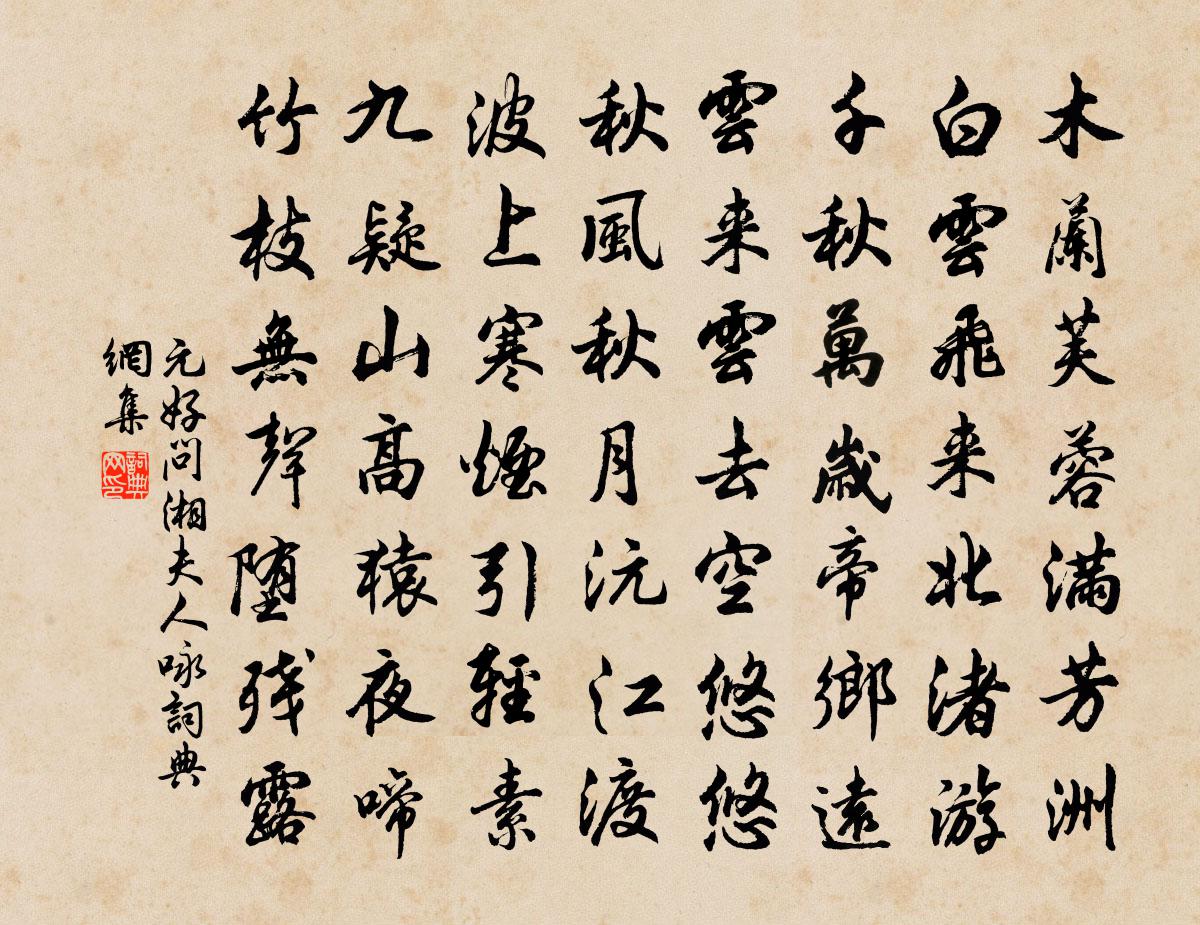 木蘭芙蓉滿芳洲
白雲飛来北渚游
千秋萬歲帝鄉遠
雲来雲去空悠悠
秋風秋月沅江渡
波上寒煙引輕素
九疑山高猿夜啼
竹枝無聲堕残露
元好問湘夫人咏詞典
網集
詞典網印